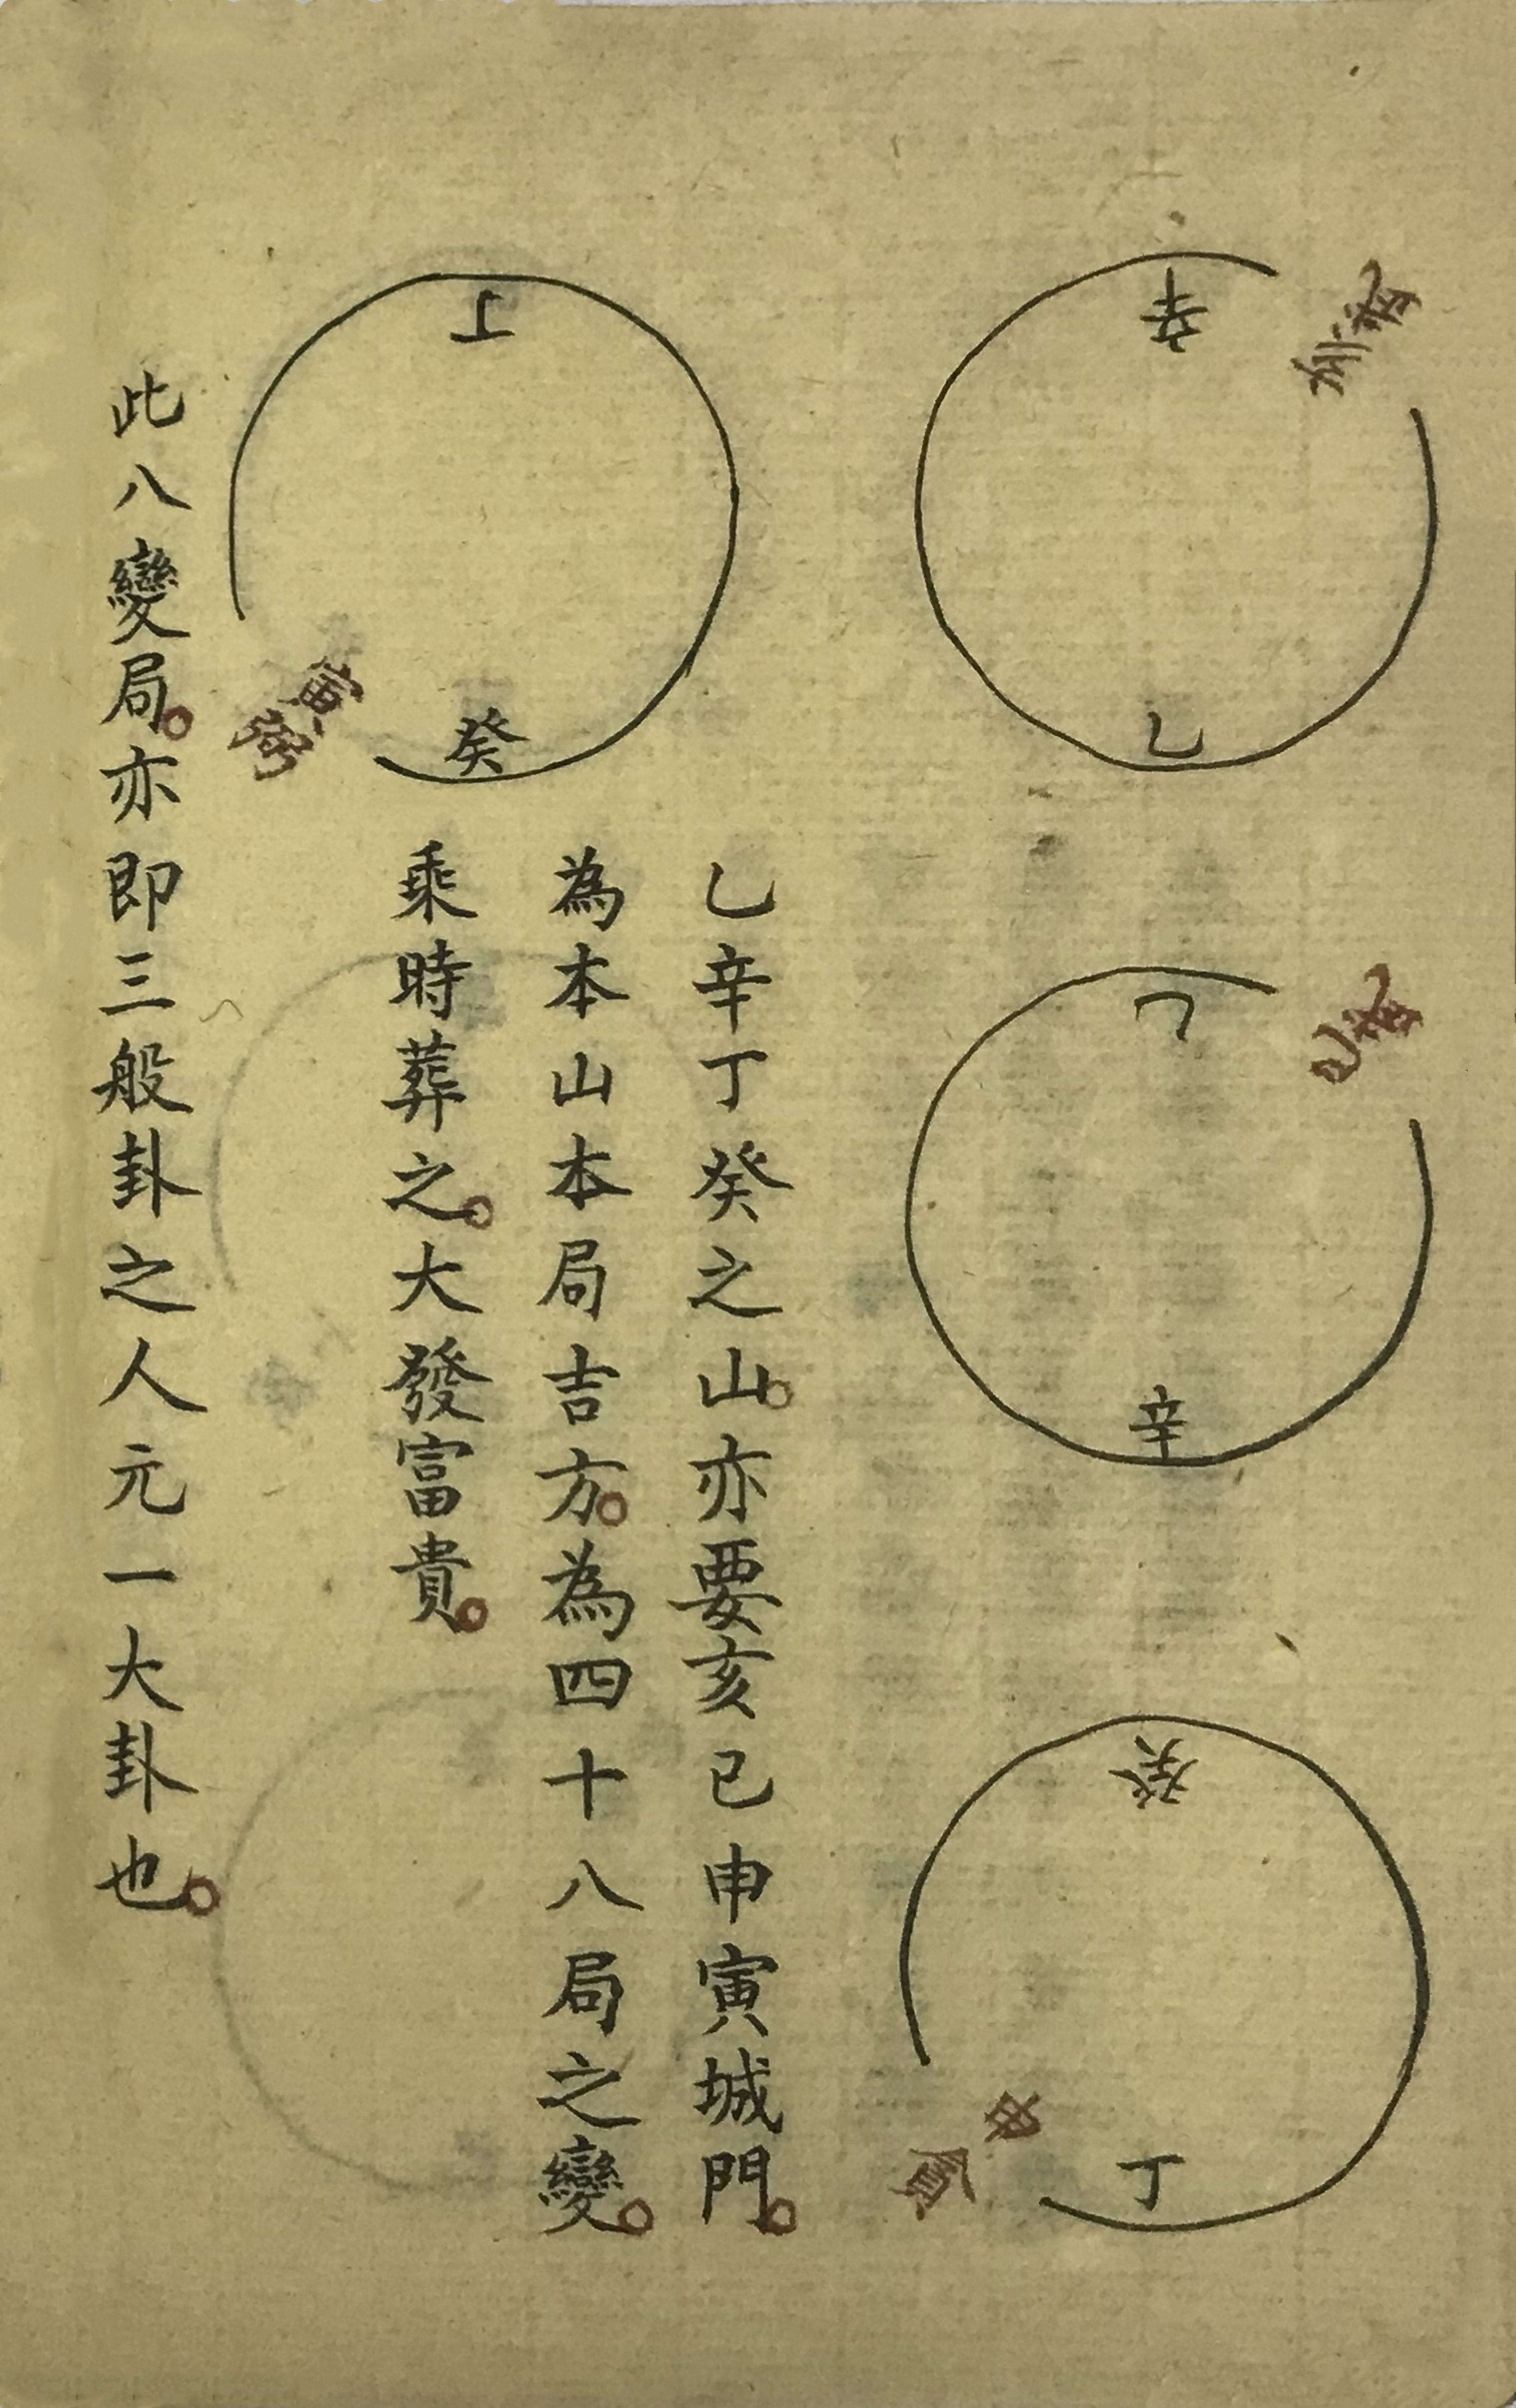 辛
乙
乙
辛
癸
丁
申
貪
丁
癸
寅
弼
乙辛丁癸之山。亦要亥巳申寅城門。
為本山本局吉方。為四十八局之變。
乘時葬之。大發富貴。
此八變局。亦即三般卦之人元一大卦也。